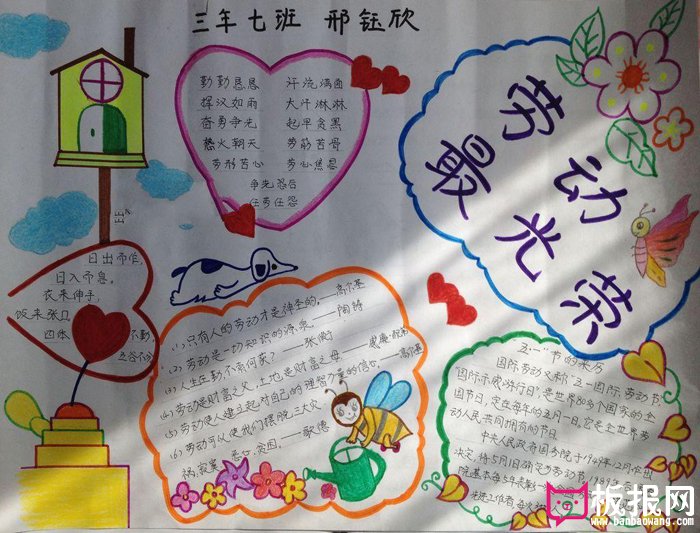 三年七班 邢钰欣
勤勤恳恳 汗流满面
挥汉如雨 大汗淋淋
奋勇争光 起早贪黑
热火朝天 劳筋苦骨
劳形苦心 劳心焦思
争先恐后
任劳任怨
劳动
最光荣
日出而作,
日入而息。
衣来伸手,
饭来张口
四体 不勤,
五谷不分
(1)只有人的劳动才是神圣的。——高尔基
(2)劳动是一切知识的源泉——陶铸
(3)人生在勤不索何获?——张衡
(4)劳动是财富之父,土地是财富之母——威廉·配第
(5)劳动使人建立起对自己的理智力量的信心。——高尔基
(6)劳动可以使我们摆脱三大灾
祸,寂寞、恶心、贫困。——歌德
五一节的来历
国际劳动又称“五一国际劳动节”
“国际示威游行日”是世界80多个国家的全
国节日,定在每年的五月一日,它是全世界劳
动人民共同拥有的节日
中央人民政府国务院于1949年12月作出
决定,将5月1日确定为劳动节1989年后,
院基本每5年表彰一
先进工作者,每次
板报网
www.banbaowang.com